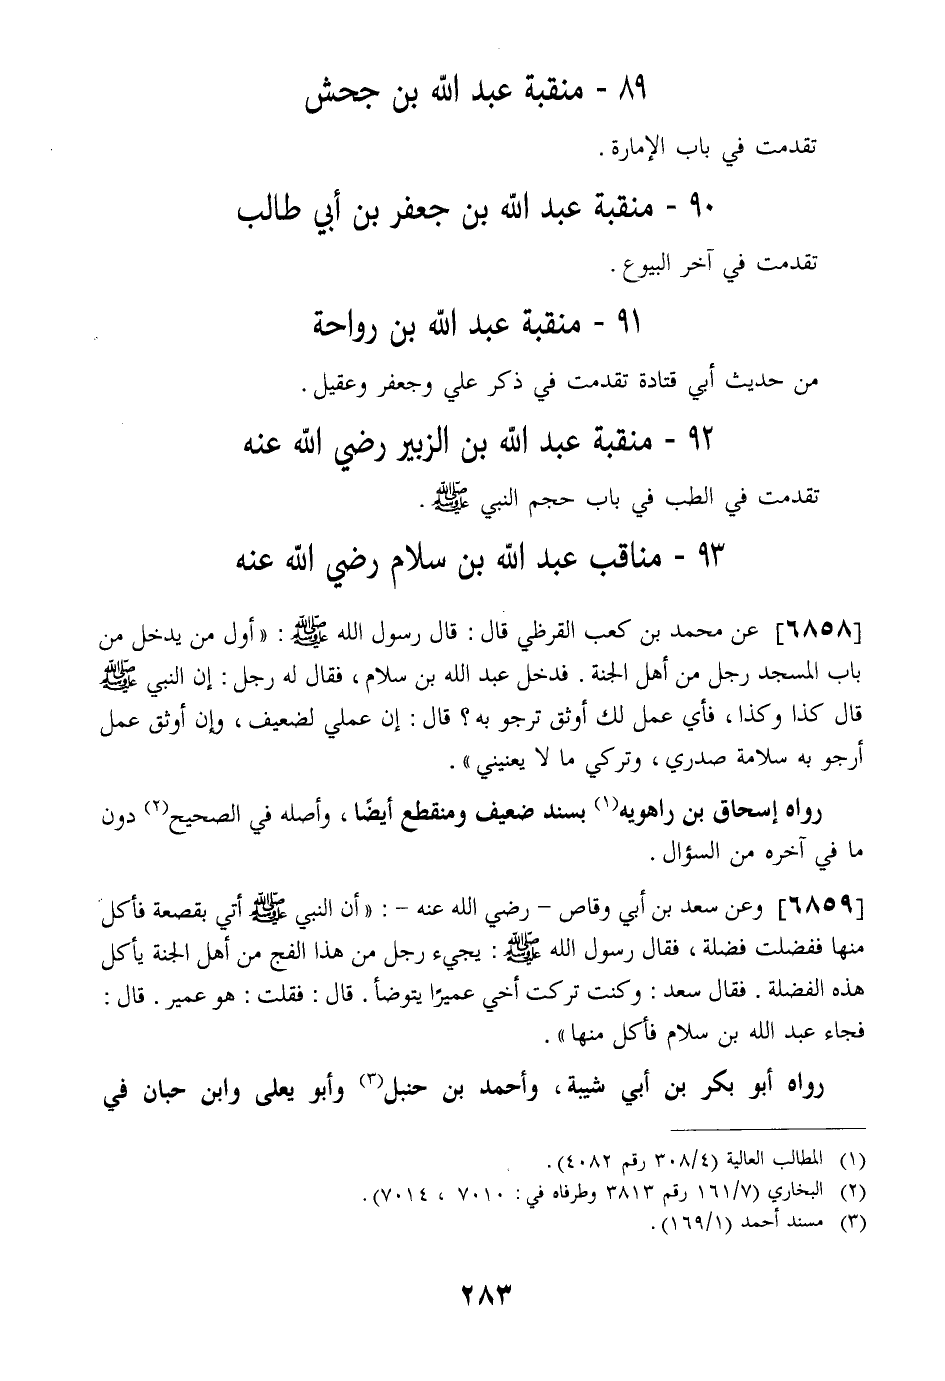 ٨٩ - منقبة عبد الله بن جحش
تقدمت في باب الإمارة .
٩٠ - منقبة عبد الله بن جعفر بن أبي طالب
تقدمت في آخر البيوع .
٩١ - منقبة عبد الله بن رواحة
من حديث أبي قتادة تقدمت في ذكر علي وجعفر وعقيل .
٩٢ - منقبة عبد الله بن الزبير رضي الله عنه
تقدمت في الطب في باب حجم النبي ﷺ .
٩٣ - مناقب عبد الله بن سلام رضي الله عنه
[٦٨٥٨] عن محمد بن كعب القرظي قال : قال رسول الله ﷺ : « أول من يدخل من
باب المسجد رجل من أهل الجنة . فدخل عبد الله بن سلام ، فقال له رجل : إن النبي ﷺ
قال كذا وكذا ، فأي عمل لك أوثق ترجو به ؟ قال : إن عملي لضعيف ، وإن أوثق عمل
أرجو به سلامة صدري ، وتركي ما لا يعنيني » .
رواه إسحاق بن راهويه(١) بسند ضعيف ومنقطع أيضًا ، وأصله في الصحيح(٢) دون
ما في آخره من السؤال .
[٦٨٥٩] وعن سعد بن أبي وقاص - رضي الله عنه - : « أن النبي ﷺ أتي بقصعة فأكل
منها ففضلت فضلة ، فقال رسول الله ﷺ : يجيء رجل من هذا الفج من أهل الجنة يأكل
هذه الفضلة . فقال سعد : وكنت تركت أخي عميرًا يتوضأ . قال : فقلت : هو عمير . قال :
فجاء عبد الله بن سلام فأكل منها » .
رواه أبو بكر بن أبي شيبة ، وأحمد بن حنبل(٣) وأبو يعلى وابن حبان في
(١) المطالب العالية (٣٠٨/٤ رقم ٤٠٨٢).
(٢) البخاري (١٦١/٧ رقم ٣٨١٣ وطرفاه في : ٧٠١٠ ، ٧٠١٤).
(٣) مسند أحمد (١٦٩/١).
٢٨٣